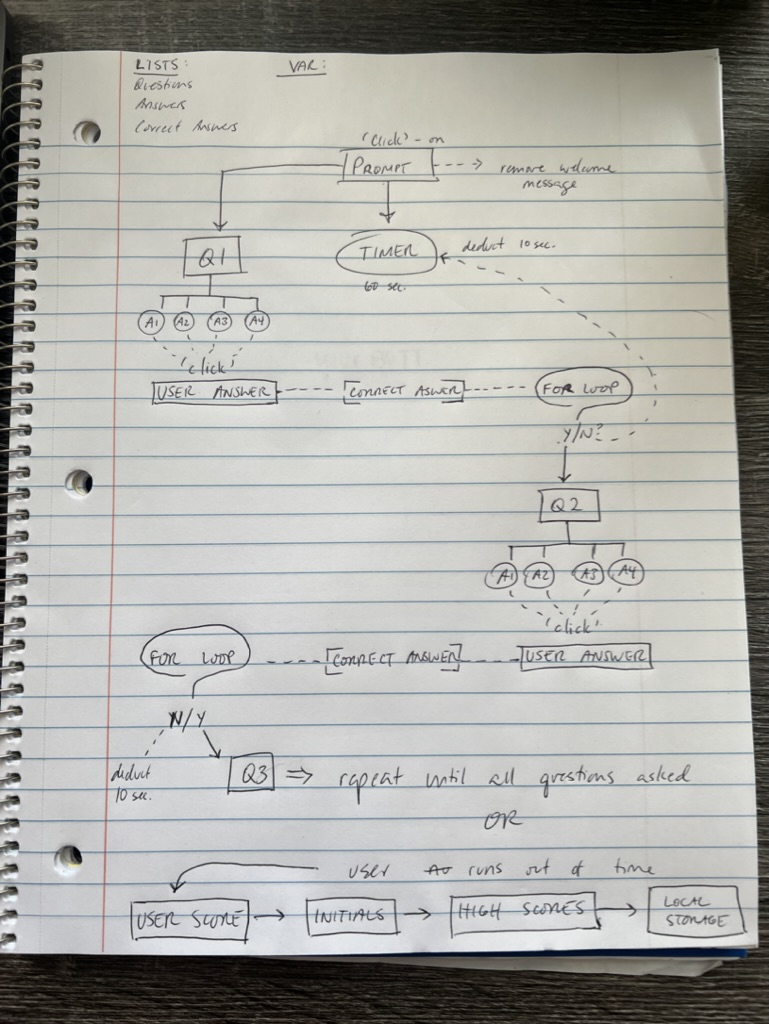 LISTS: VAR:
Questions
Answers
Correct Answers
'Click' - on
PROMPT remove welcome
message
Q1 TIMER deduct 10 sec.
60 sec.
A1 A2 A3 A4
'click'
USER ANSWER [CORRECT ASWER] FOR LOOP
Y/N?
Q2
A1 A2 A3 A4
'click'
FOR LOOP [CORRECT ANSWER] USER ANSWER
N/Y
deduct
10 sec.
Q3 ⇒ repeat until all questions asked
OR
user runs out of time
USER SCORE → INITIALS → HIGH SCORES → LOCAL
STORAGE